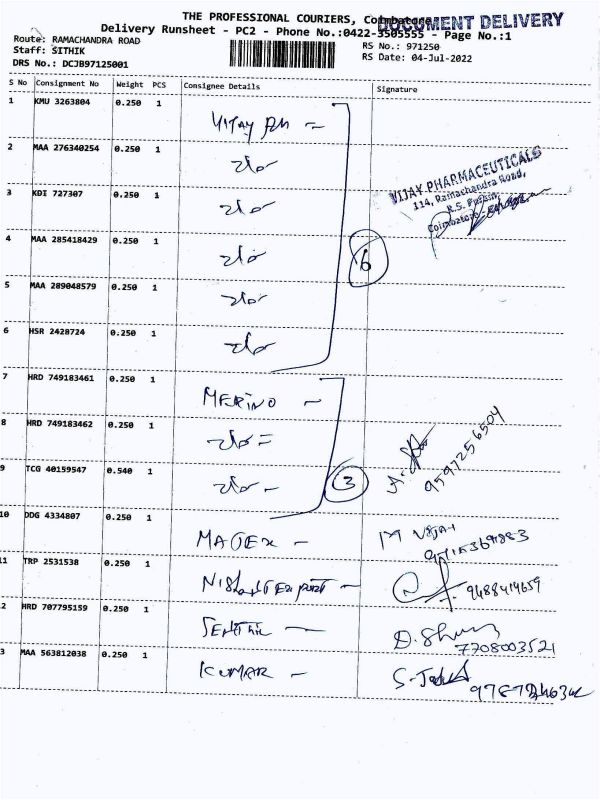 THE PROFESSIONAL COURIERS, Coimbatore
DOCUMENT DELIVERY
Delivery Runsheet - PC2 - Phone No.:0422-3505555 - Page No.:1
Route: RAMACHANDRA ROAD
RS No.: 971250
Staff: SITHIK
RS Date: 04-Jul-2022
DRS No.: DCJB97125001
S No Consignment No Weight PCS Consignee Details Signature
1 KMU 3263804 0.250 1
VIJAY PH
2 MAA 276340254 0.250 1
do
3 KDI 727307 0.250 1
do
VIJAY PHARMACEUTICALS
114, Ramachandra Road,
R.S. Puram,
Coimbatore
4 MAA 285418429 0.250 1
do
6
5 MAA 289048579 0.250 1
do
6 HSR 2428724 0.250 1
do
7 HRD 749183461 0.250 1
MERINO
8 HRD 749183462 0.250 1
do
9 TCG 40159547 0.540 1
do
3
9597256504
10 DDG 4334807 0.250 1
MATEX
M VIJAY
11 TRP 2531538 0.250 1
Nishant Export
9488414659
2 HRD 707795159 0.250 1
SENTHIL
7708003521
3 MAA 563812038 0.250 1
KUMAR